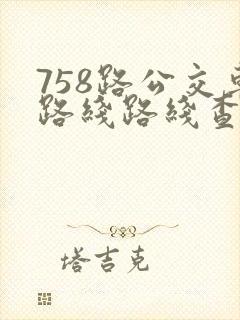 758路公交车
路线路线查
塔吉克